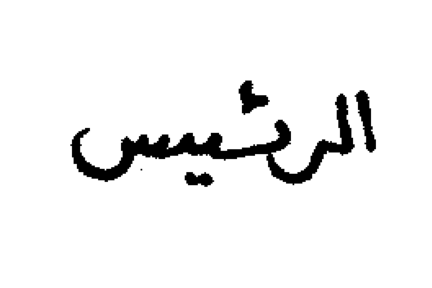 الرئيس